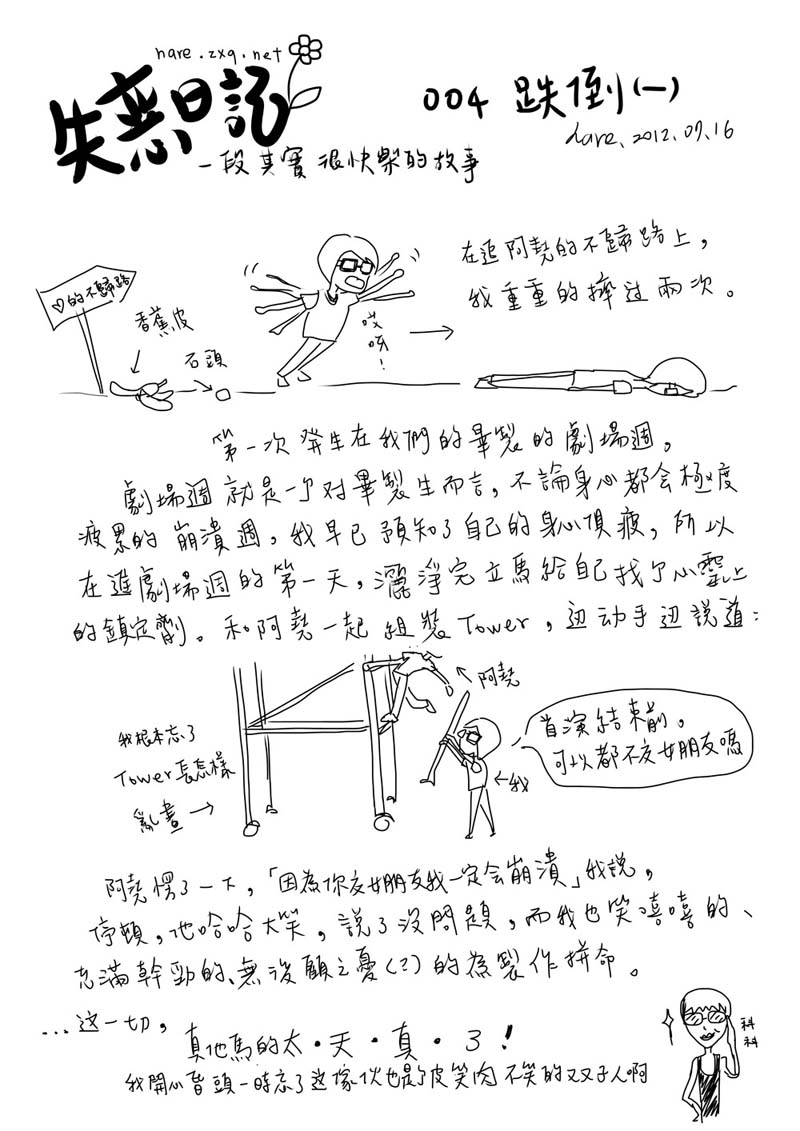 hare.zxq.net
失恋日記
004 跌倒(一)
hare、2012.07.16
一段其實很快樂的故事
在追阿堯的不歸路上，
我重重的摔过兩次。
♡的不歸路
香蕉皮
石頭
哎呀！
第一次発生在我們的畢製的劇場週。
劇場週就是一个对畢製生而言，不論身心都会極度
疲累的崩潰週，我早已預知了自己的身心俱疲，所以
在進劇場週的第一天，灑淨完立馬給自己找了心靈上
的鎮定劑。和阿堯一起組裝Tower，边动手边説道：
阿堯
我根本忘了
Tower長怎樣
亂畫
首演結束前。
可以都不交女朋友嗎
我
阿堯愣了一下，「因為你交女朋友我一定会崩潰」我説，
停頓，他哈哈大笑，説了沒問題，而我也笑嘻嘻的、
充滿幹勁的、無後顧之憂(?)的為製作拼命。
...这一切，
真他馬的太・天・真・了！
我開心昏頭一時忘了这傢伙也是个皮笑肉不笑的双子人啊
科科